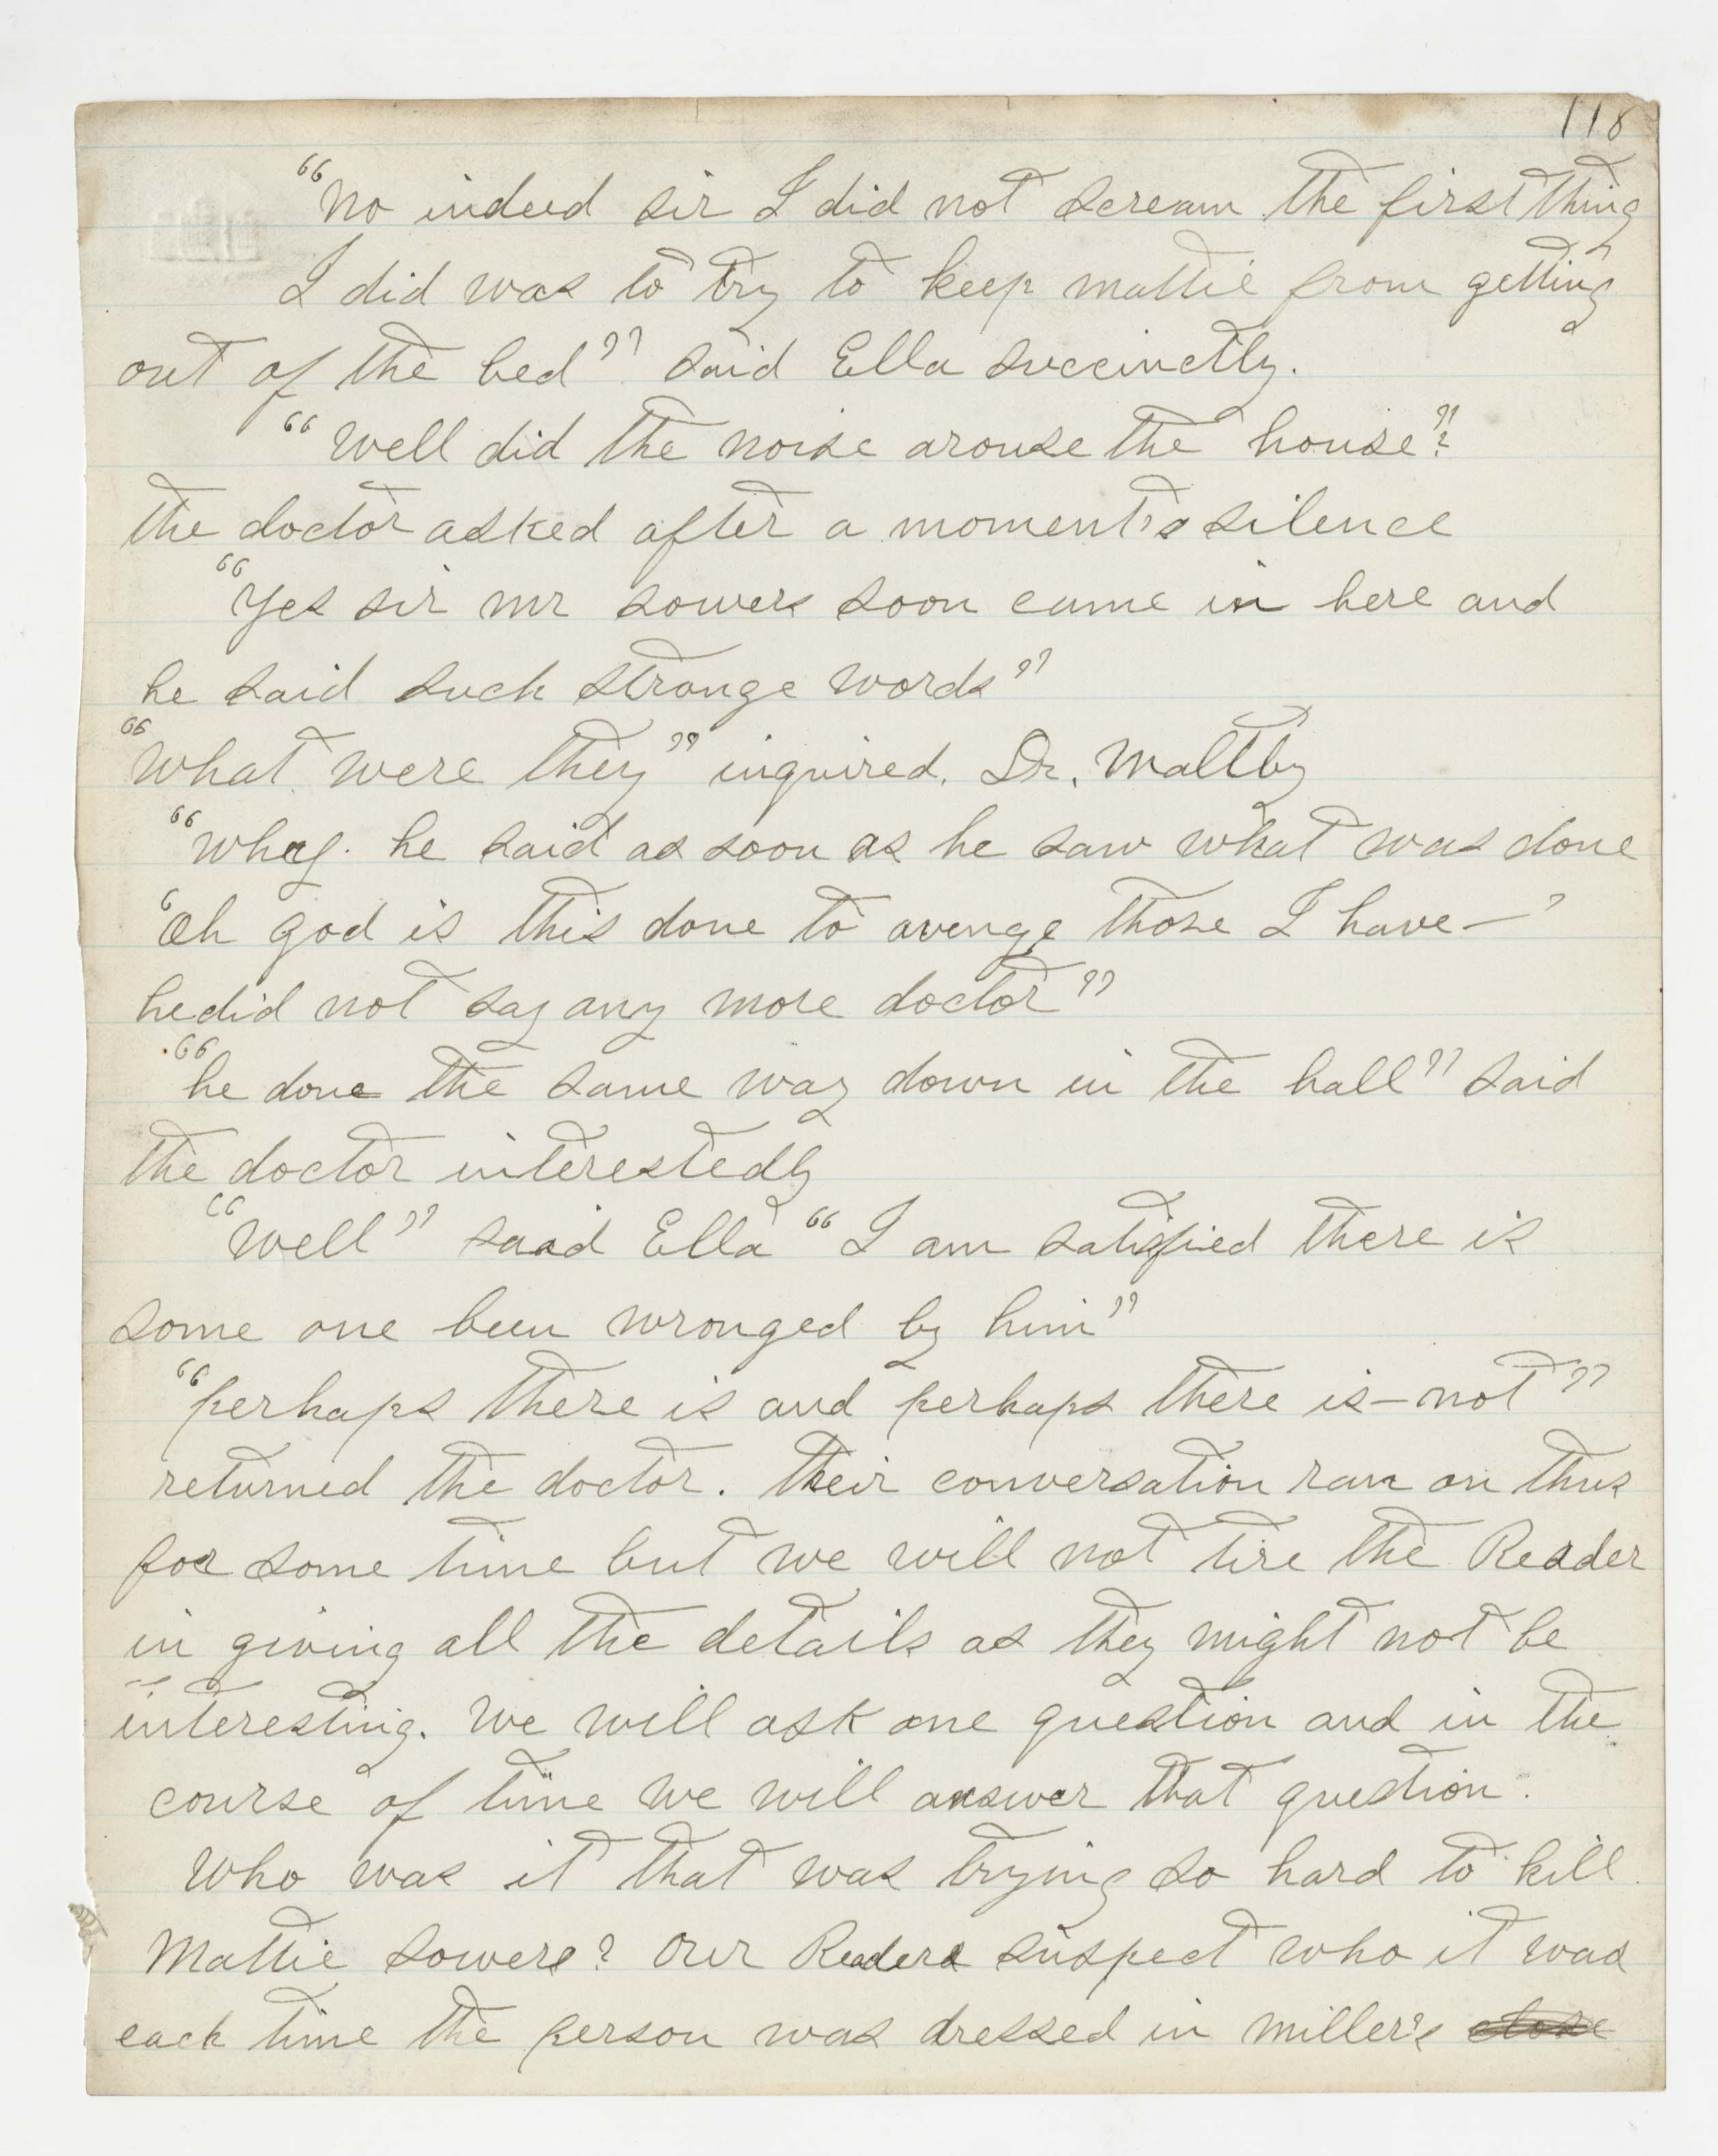 118
"No indeed sir I did not scream the first thing
I did was to try to keep mattie from getting
out of the bed" said Ella succinctly.
"well did the noise arouse the house"?
the doctor asked after a moment's silence
"Yes sir mr sowers soon came in here and
he said such strange words"
"what were they" inquired. Dr. Maltby
"whey. he said as soon as he saw what was done
'Oh god is this done to avenge those I have—'
he did not say any more doctor"
"he done the same way down in the hall" said
the doctor interestedly
"well" said Ella "I am satisfied there is
some one been wronged by him"
"perhaps there is and perhaps there is—not"
returned the doctor. Their conversation ran on thus
for some time but we will not tire the Reader
in giving all the details as they might not be
interesting. We will ask one question and in the
course of time we will answer that question.
Who was it that was trying so hard to kill
Mattie Sowers? Our Readers suspect who it was
each time the person was dressed in miller's close